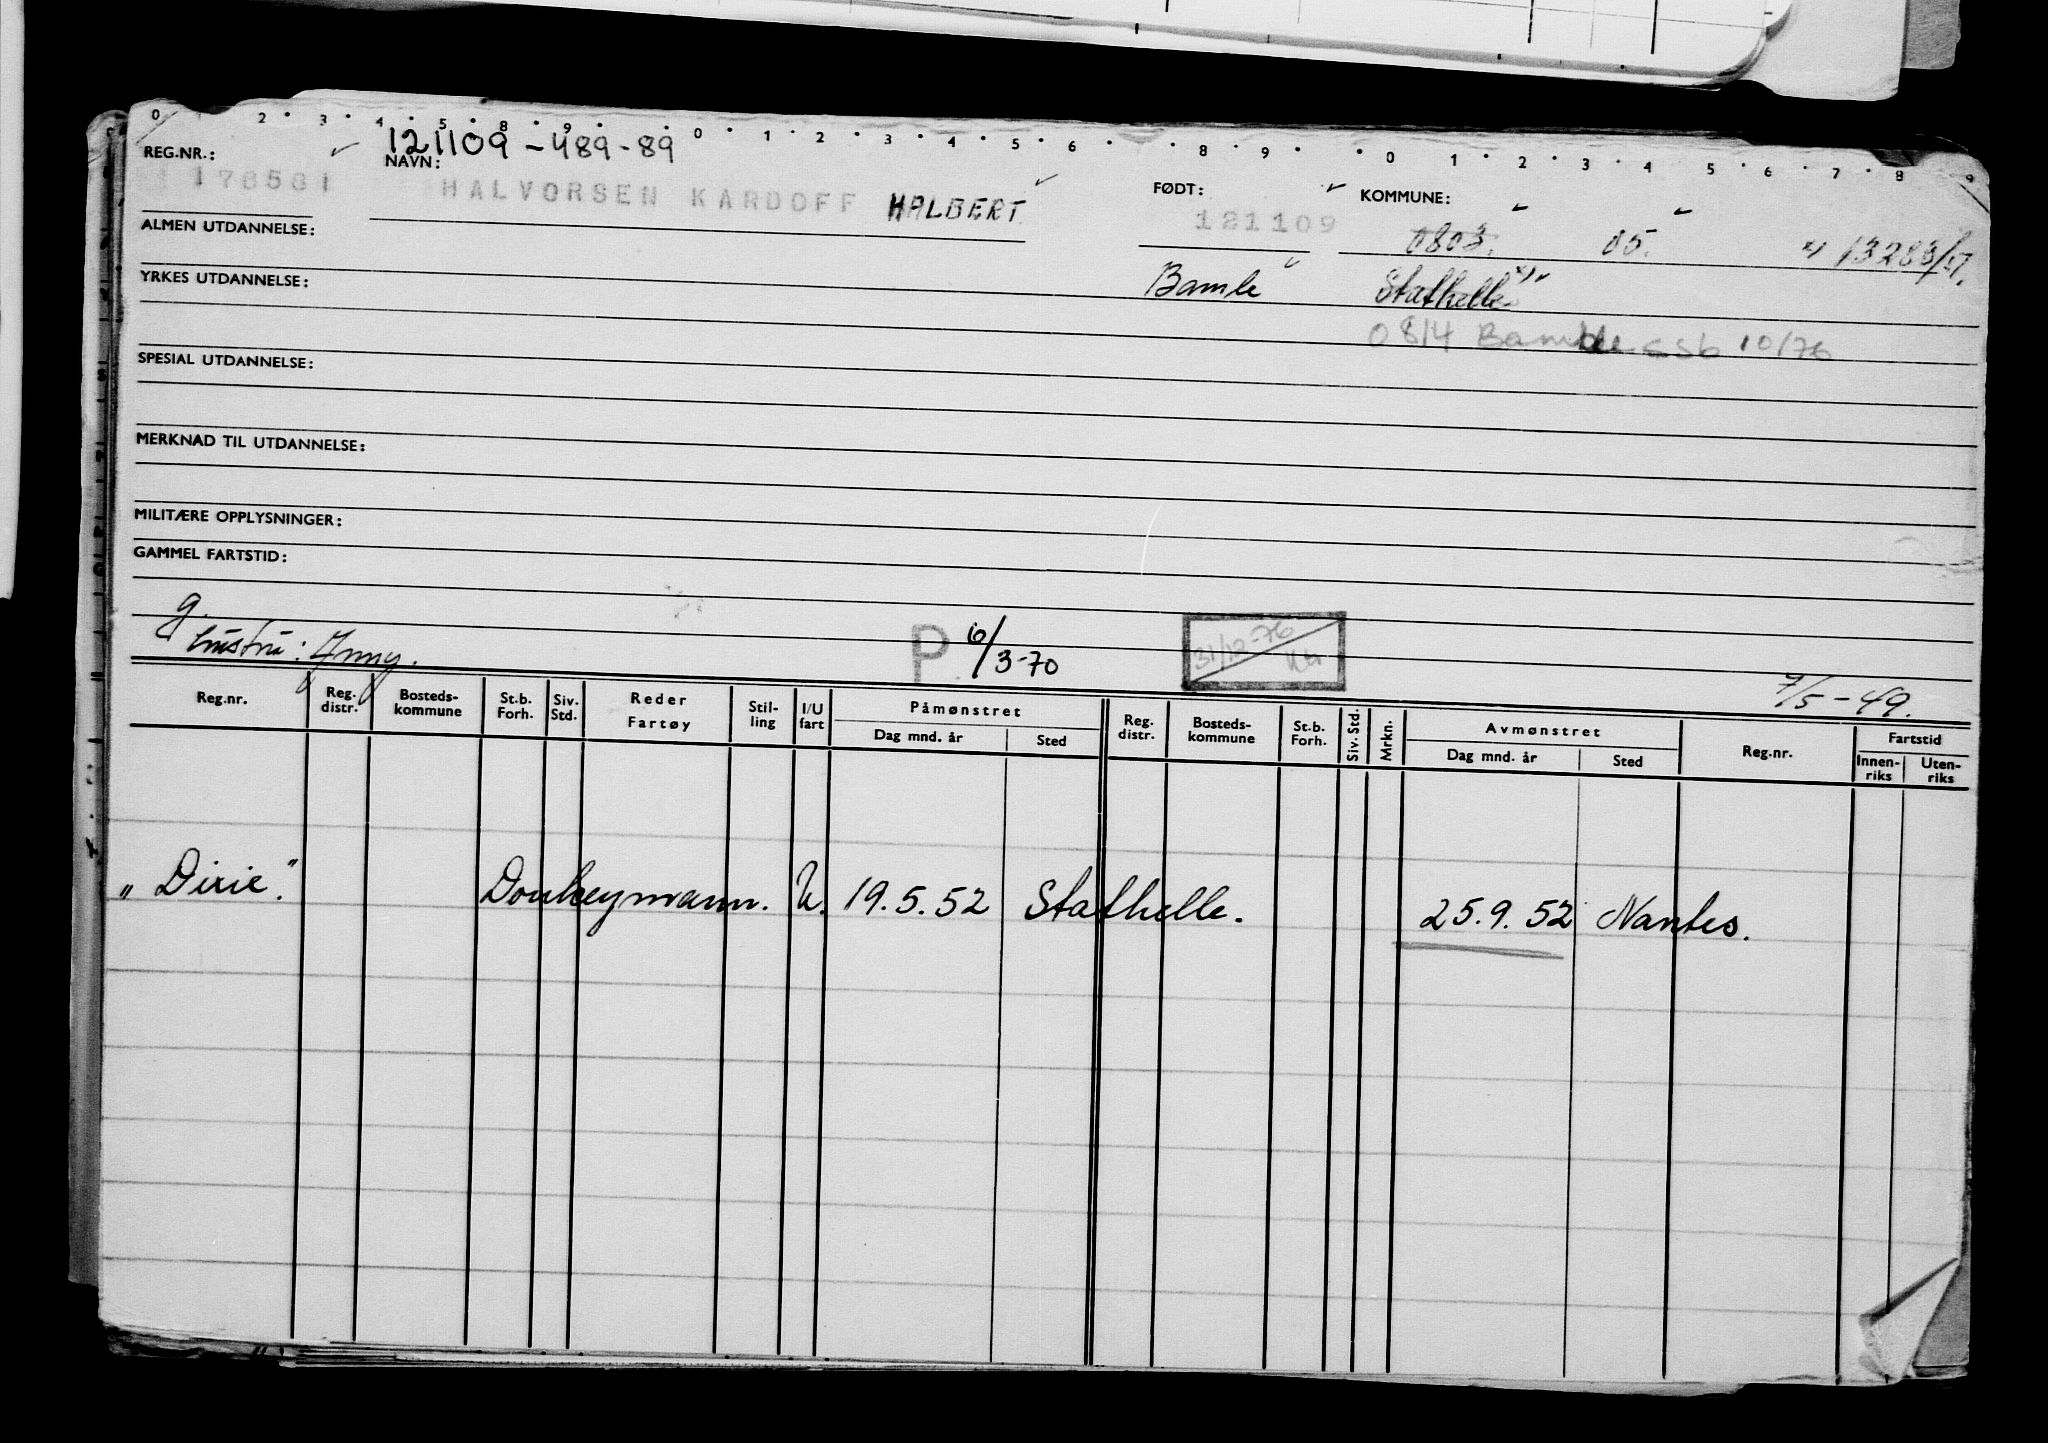 0 2 3 4 5 8 9 0 1 2 3 4 5 6 8 9 0 1 2 3 4 5 6 7 8 9
121109-489-89
REG.NR.: NAVN: FØDT: KOMMUNE:
178581 HALVORSEN KARDOFF HALBERT 121109 0803. 05. x) 13283/57.
ALMEN UTDANNELSE:
YRKES UTDANNELSE: Bamle Stathelle x)
0814 Bamble SSb 10/76
SPESIAL UTDANNELSE:
MERKNAD TIL UTDANNELSE:
MILITÆRE OPPLYSNINGER:
GAMMEL FARTSTID:
g.
hustru: Jenny. P 6/3-70 31/12-76 7/5-49.
Reg.nr. Reg. distr. Bostedskommune St.b. Forh. Siv. Std. Reder Fartøy Stilling I/U fart Påmønstret Dag mnd. år Sted Reg. distr. Bostedskommune St.b. Forh. Siv. Std. Mrkn. Avmønstret Dag mnd. år Sted Reg.nr. Fartstid Innenriks Utenriks
„Dixie". Donkeymann. U. 19.5.52 Stathelle. 25.9.52 Nantes.